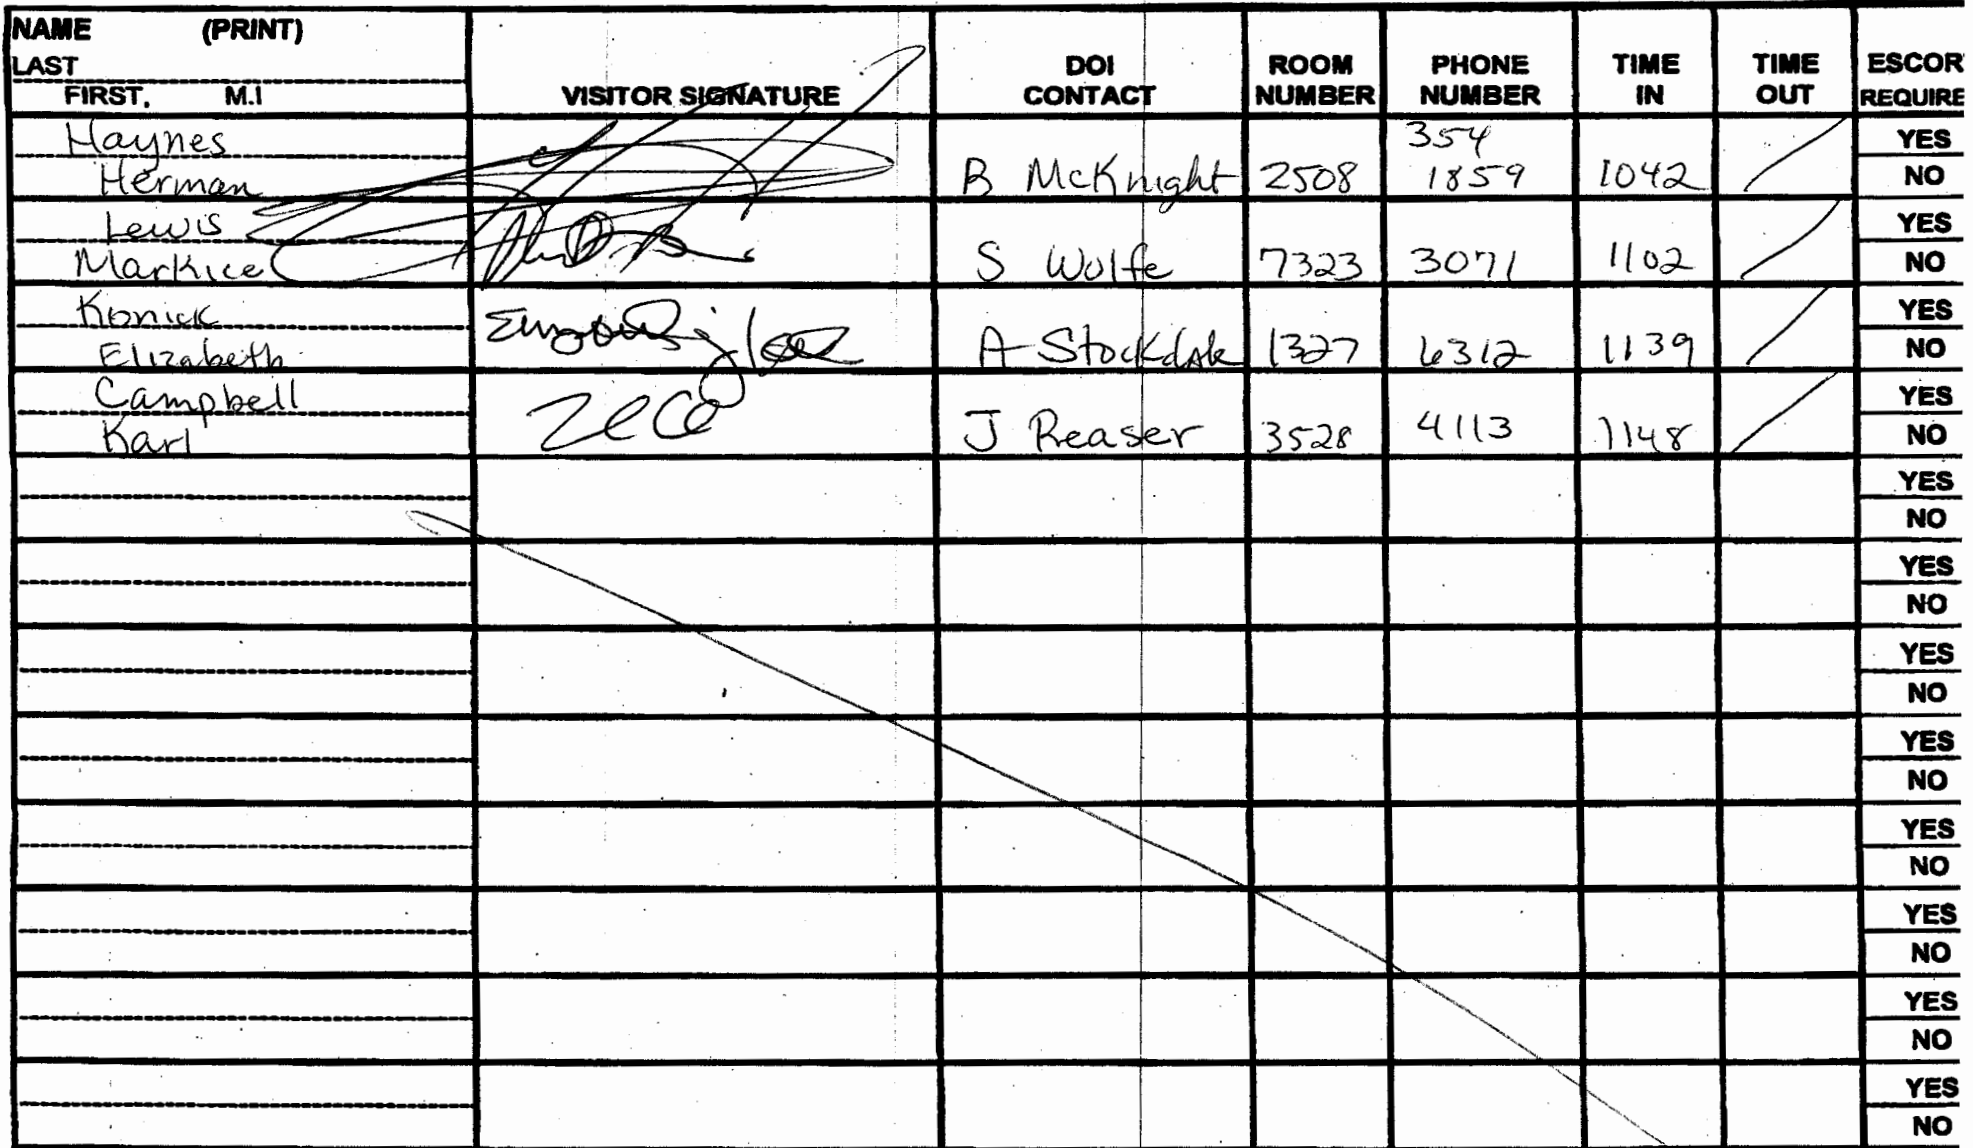 NAME (PRINT)
LAST
FIRST, M.I
VISITOR SIGNATURE
DOI CONTACT
ROOM NUMBER
PHONE NUMBER
TIME IN
TIME OUT
ESCOR
REQUIRE
Haynes 354 YES
Herman B McKnight 2508 1859 1042 NO
Lewis YES
Markice S Wolfe 7323 3071 1102 NO
Konick YES
Elizabeth A Stockdale 1327 6312 1139 NO
Campbell YES
Karl J Reaser 3528 4113 1148 NO
YES
NO
YES
NO
YES
NO
YES
NO
YES
NO
YES
NO
YES
NO
YES
NO